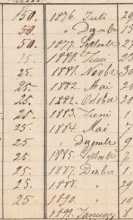 150. 1876 Juli
50. " Dezembr
50. 1877. Septembr
25. 1880. Juni
25. 1881. Novbr
25. 1882. Mai
25. 1882. Octbr
25. 1883. Juni
25. 1884. Mai
25. " Dezembr
25. 1885. Septembr
25. 1887. Dezbr
25. 1888. "
25. 1890.
1892. Januar